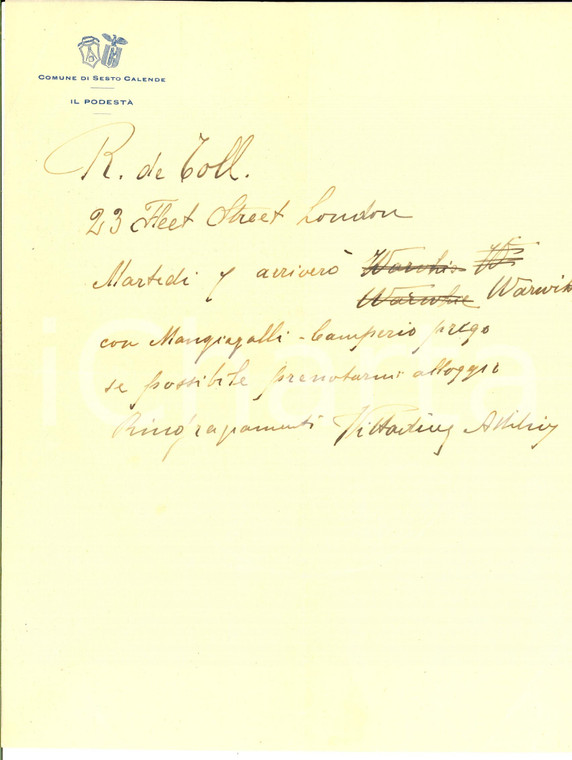 COMUNE DI SESTO CALENDE
IL PODESTÀ
R. de Toll.
23 Fleet Street London
Martedi 7 arriverò Warchi W
Warwhic Warwik
con Mangiagalli - Camperio prego
se possibile prenotarmi alloggio
Ringraziamenti Vittadini Attilio
iCharta